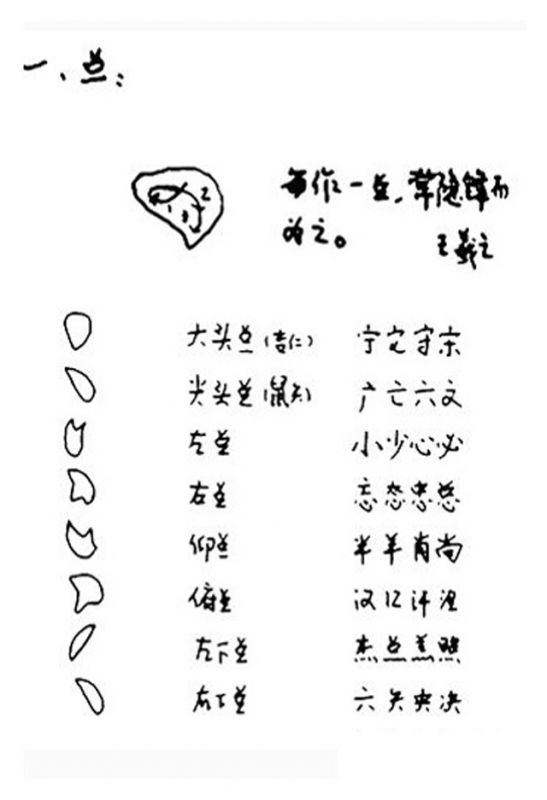 一、点:
每作一点,常隐锋而
为之。 王羲之
大头点(杏仁) 宁文守宗
尖头点(鼠矢) 广亡六文
左点 小少心必
右点 忘怒忠总
仰点 半羊肖尚
俯点 汉江汗湿
左下点 杰点羔照
右下点 六关央决